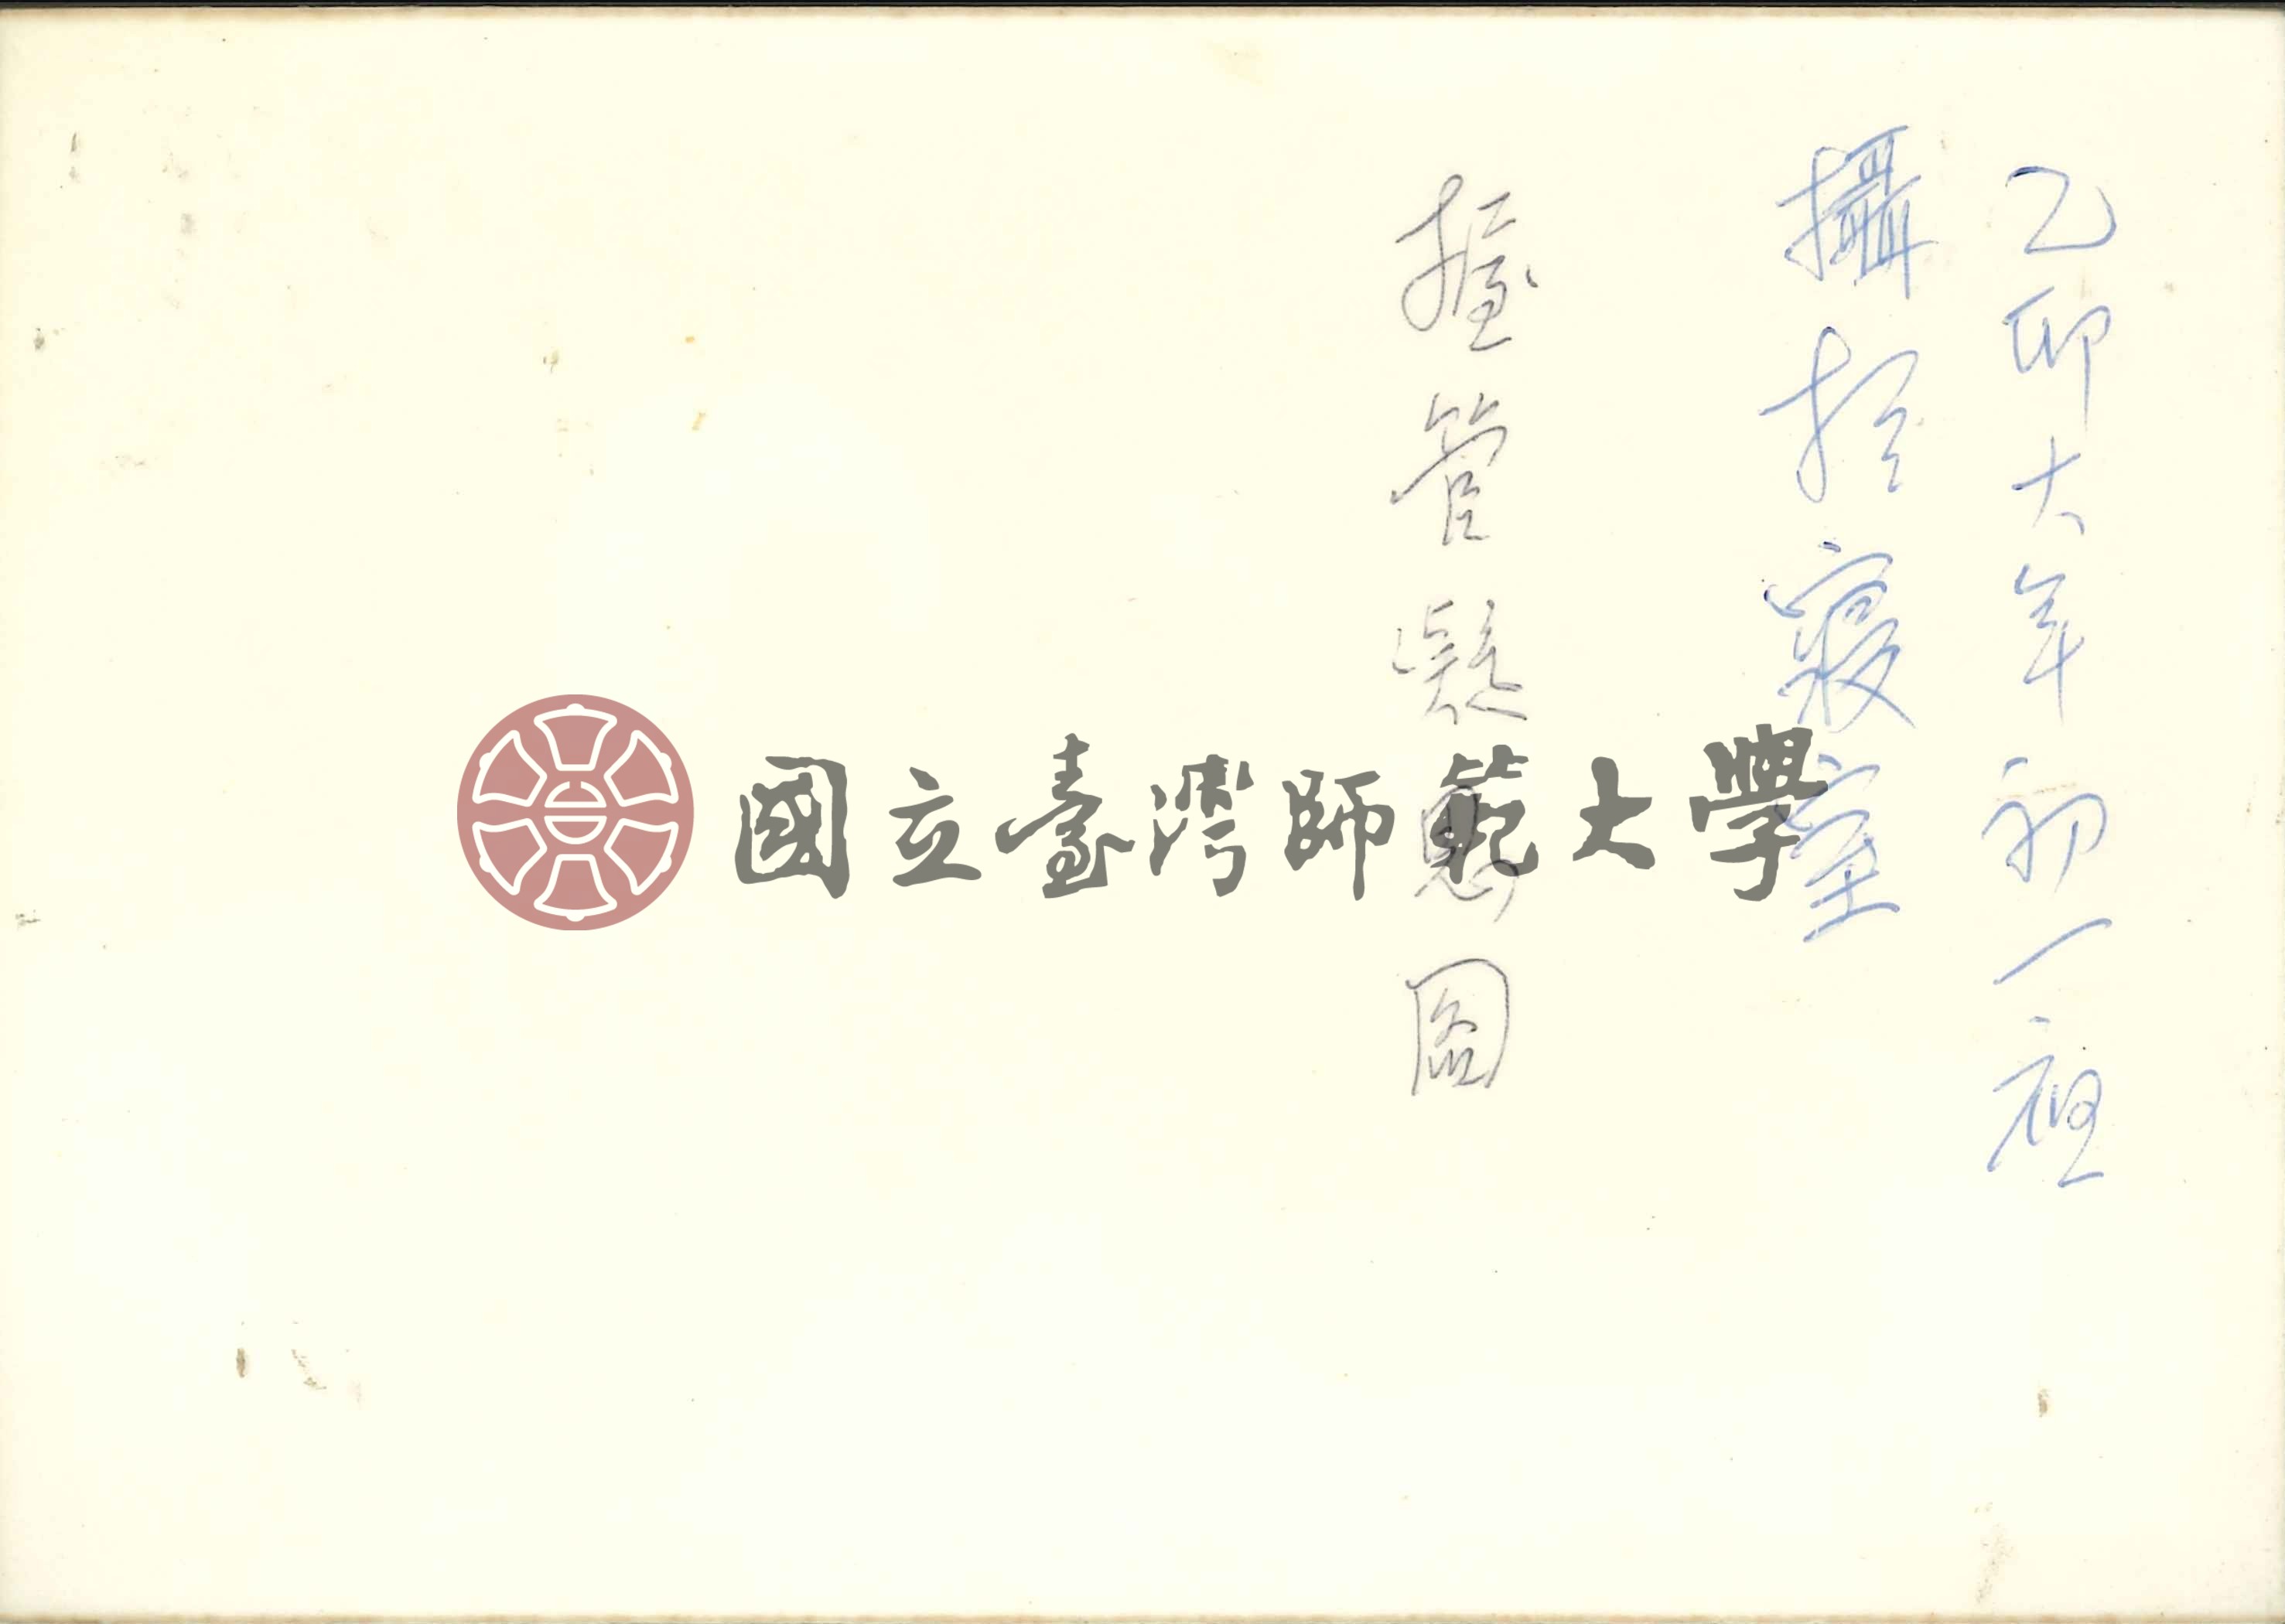 乙卯大年初一夜
攝於寢室
握管凝思圖
國立臺灣師範大學